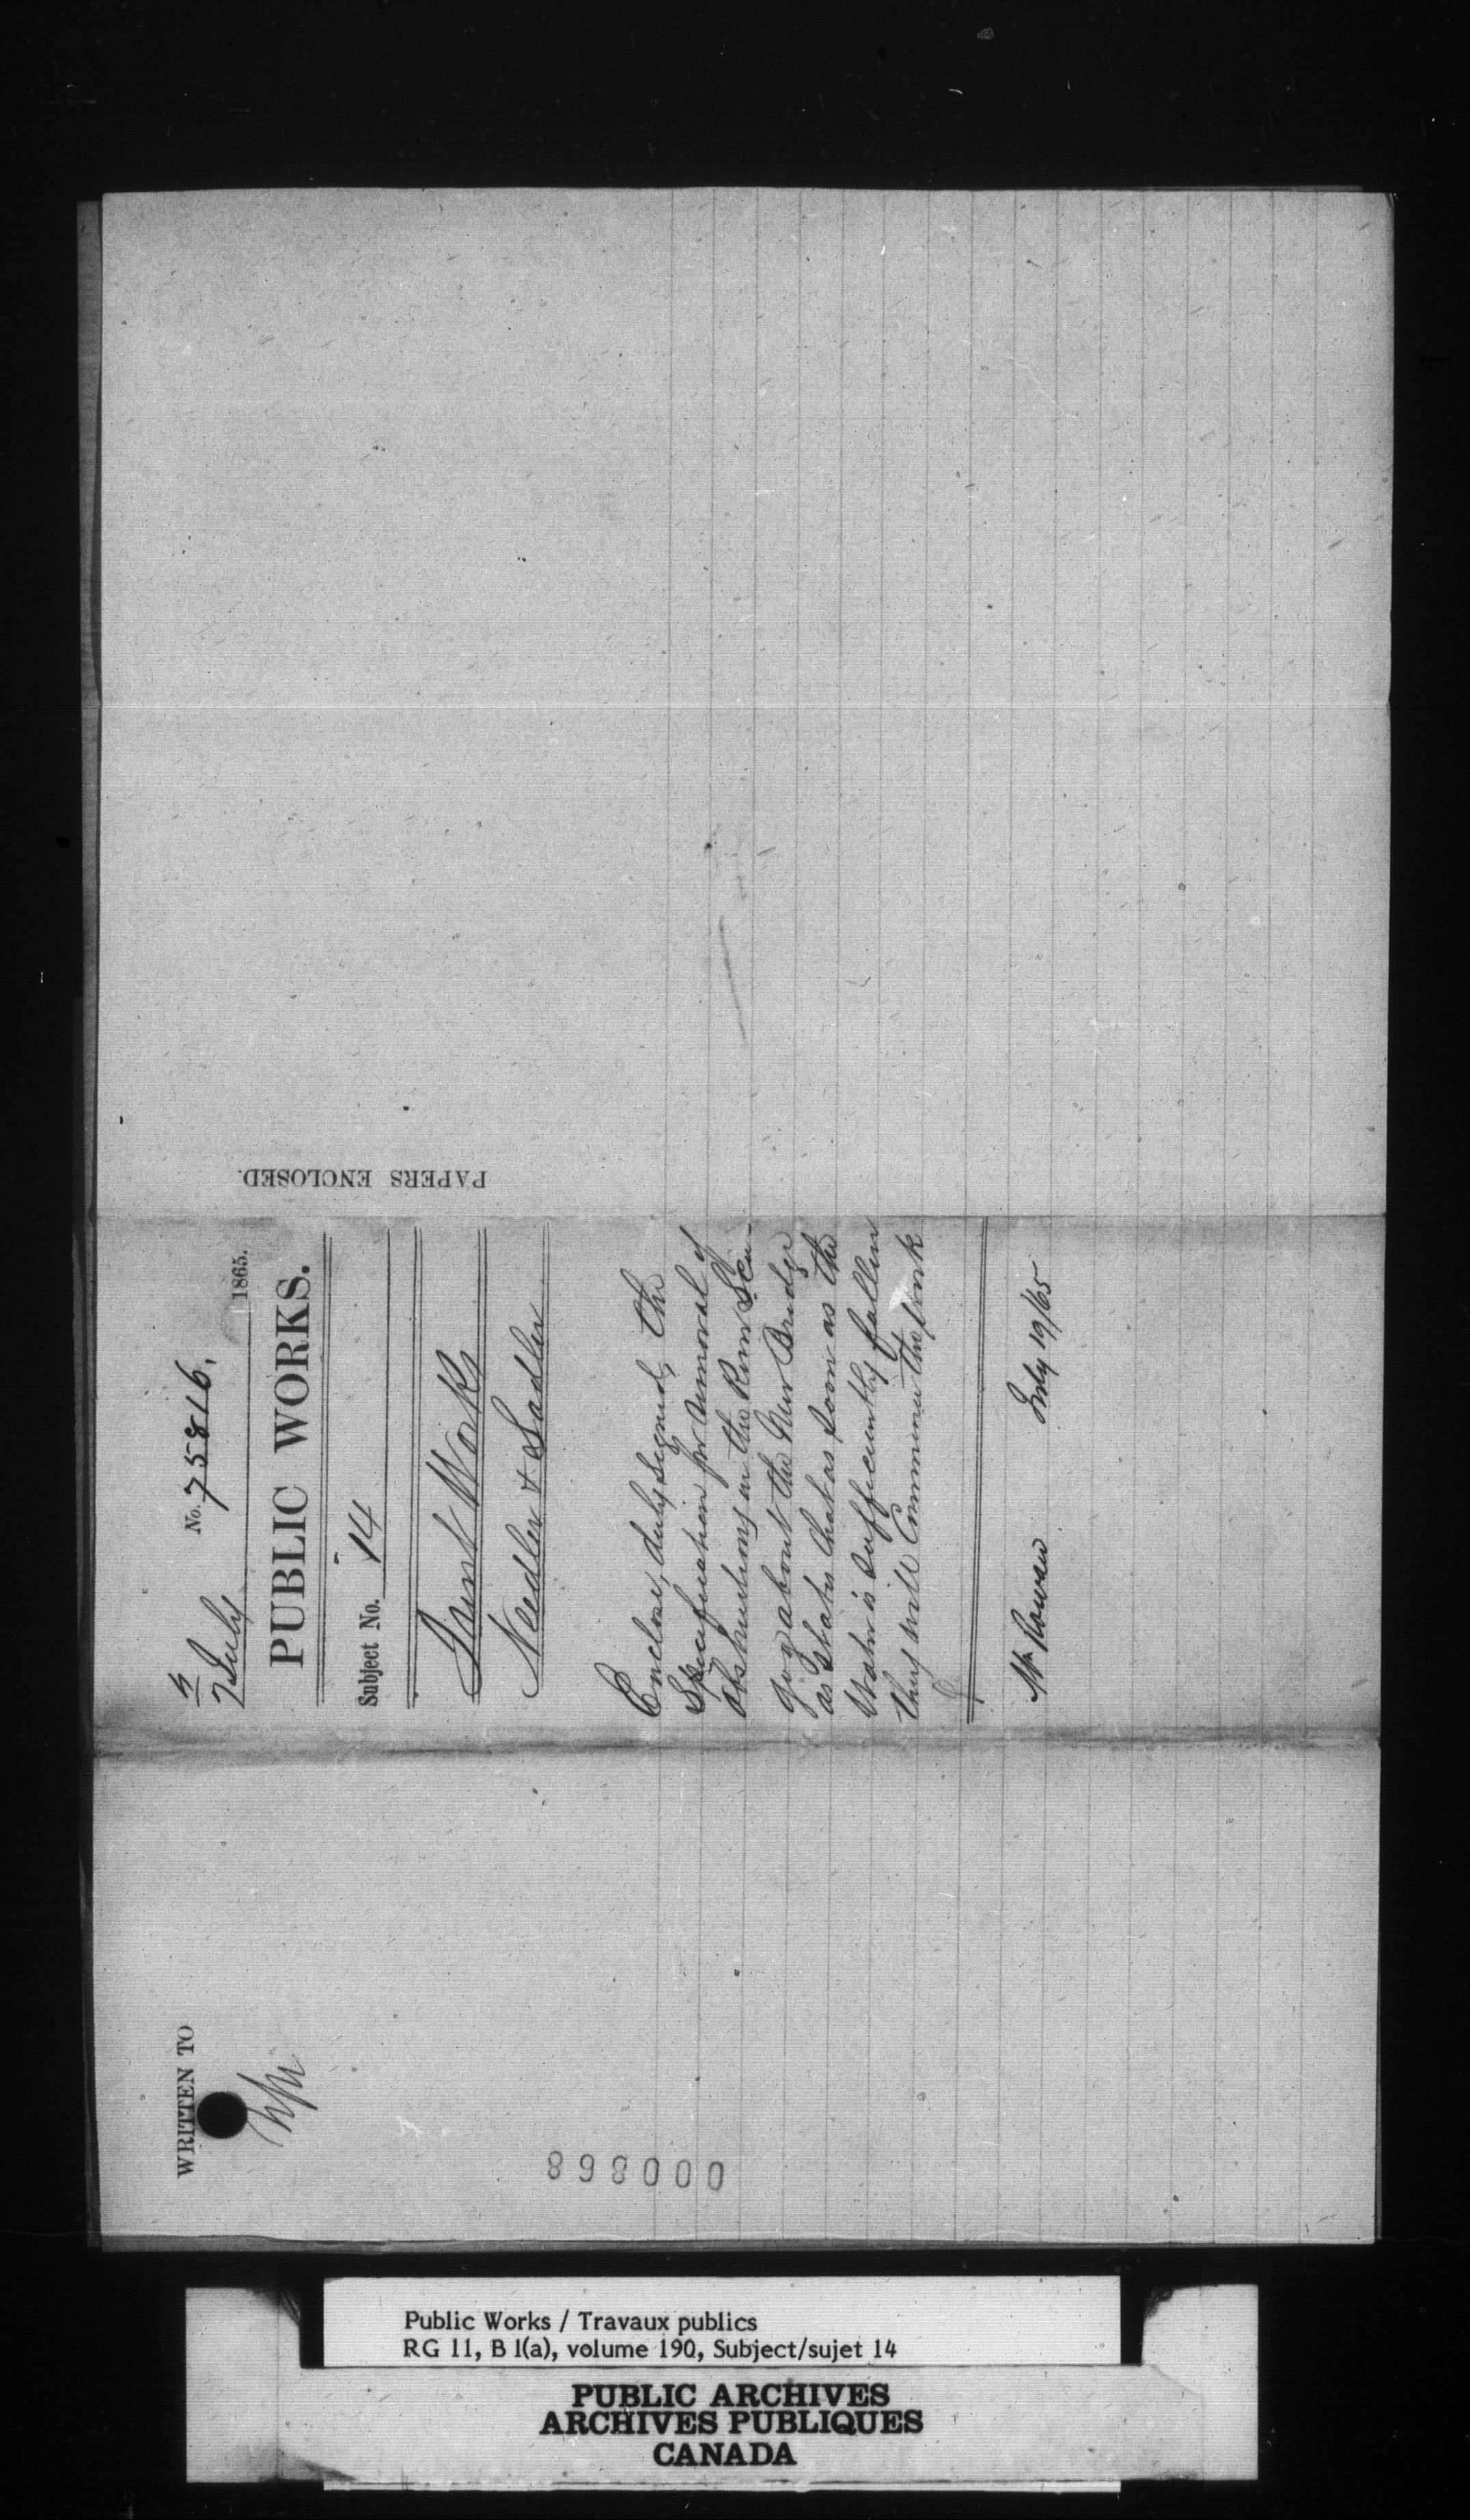 WRITTEN TO
4
July
No. 75816.
1865.
PUBLIC WORKS.
Subject No. 14
Trent Works
Needler & Sadler
Enclose, duly signed, the
Specification for removal of
Obstructions in the River Scu-
gog about the New Bridge
as states that as soon as the
Water is sufficiently fallen
they will Commence the work
Mr Rowan July 19/65
PAPERS ENCLOSED.
000868
Public Works / Travaux publics
RG 11, B 1(a), volume 190, Subject/sujet 14
PUBLIC ARCHIVES
ARCHIVES PUBLIQUES
CANADA